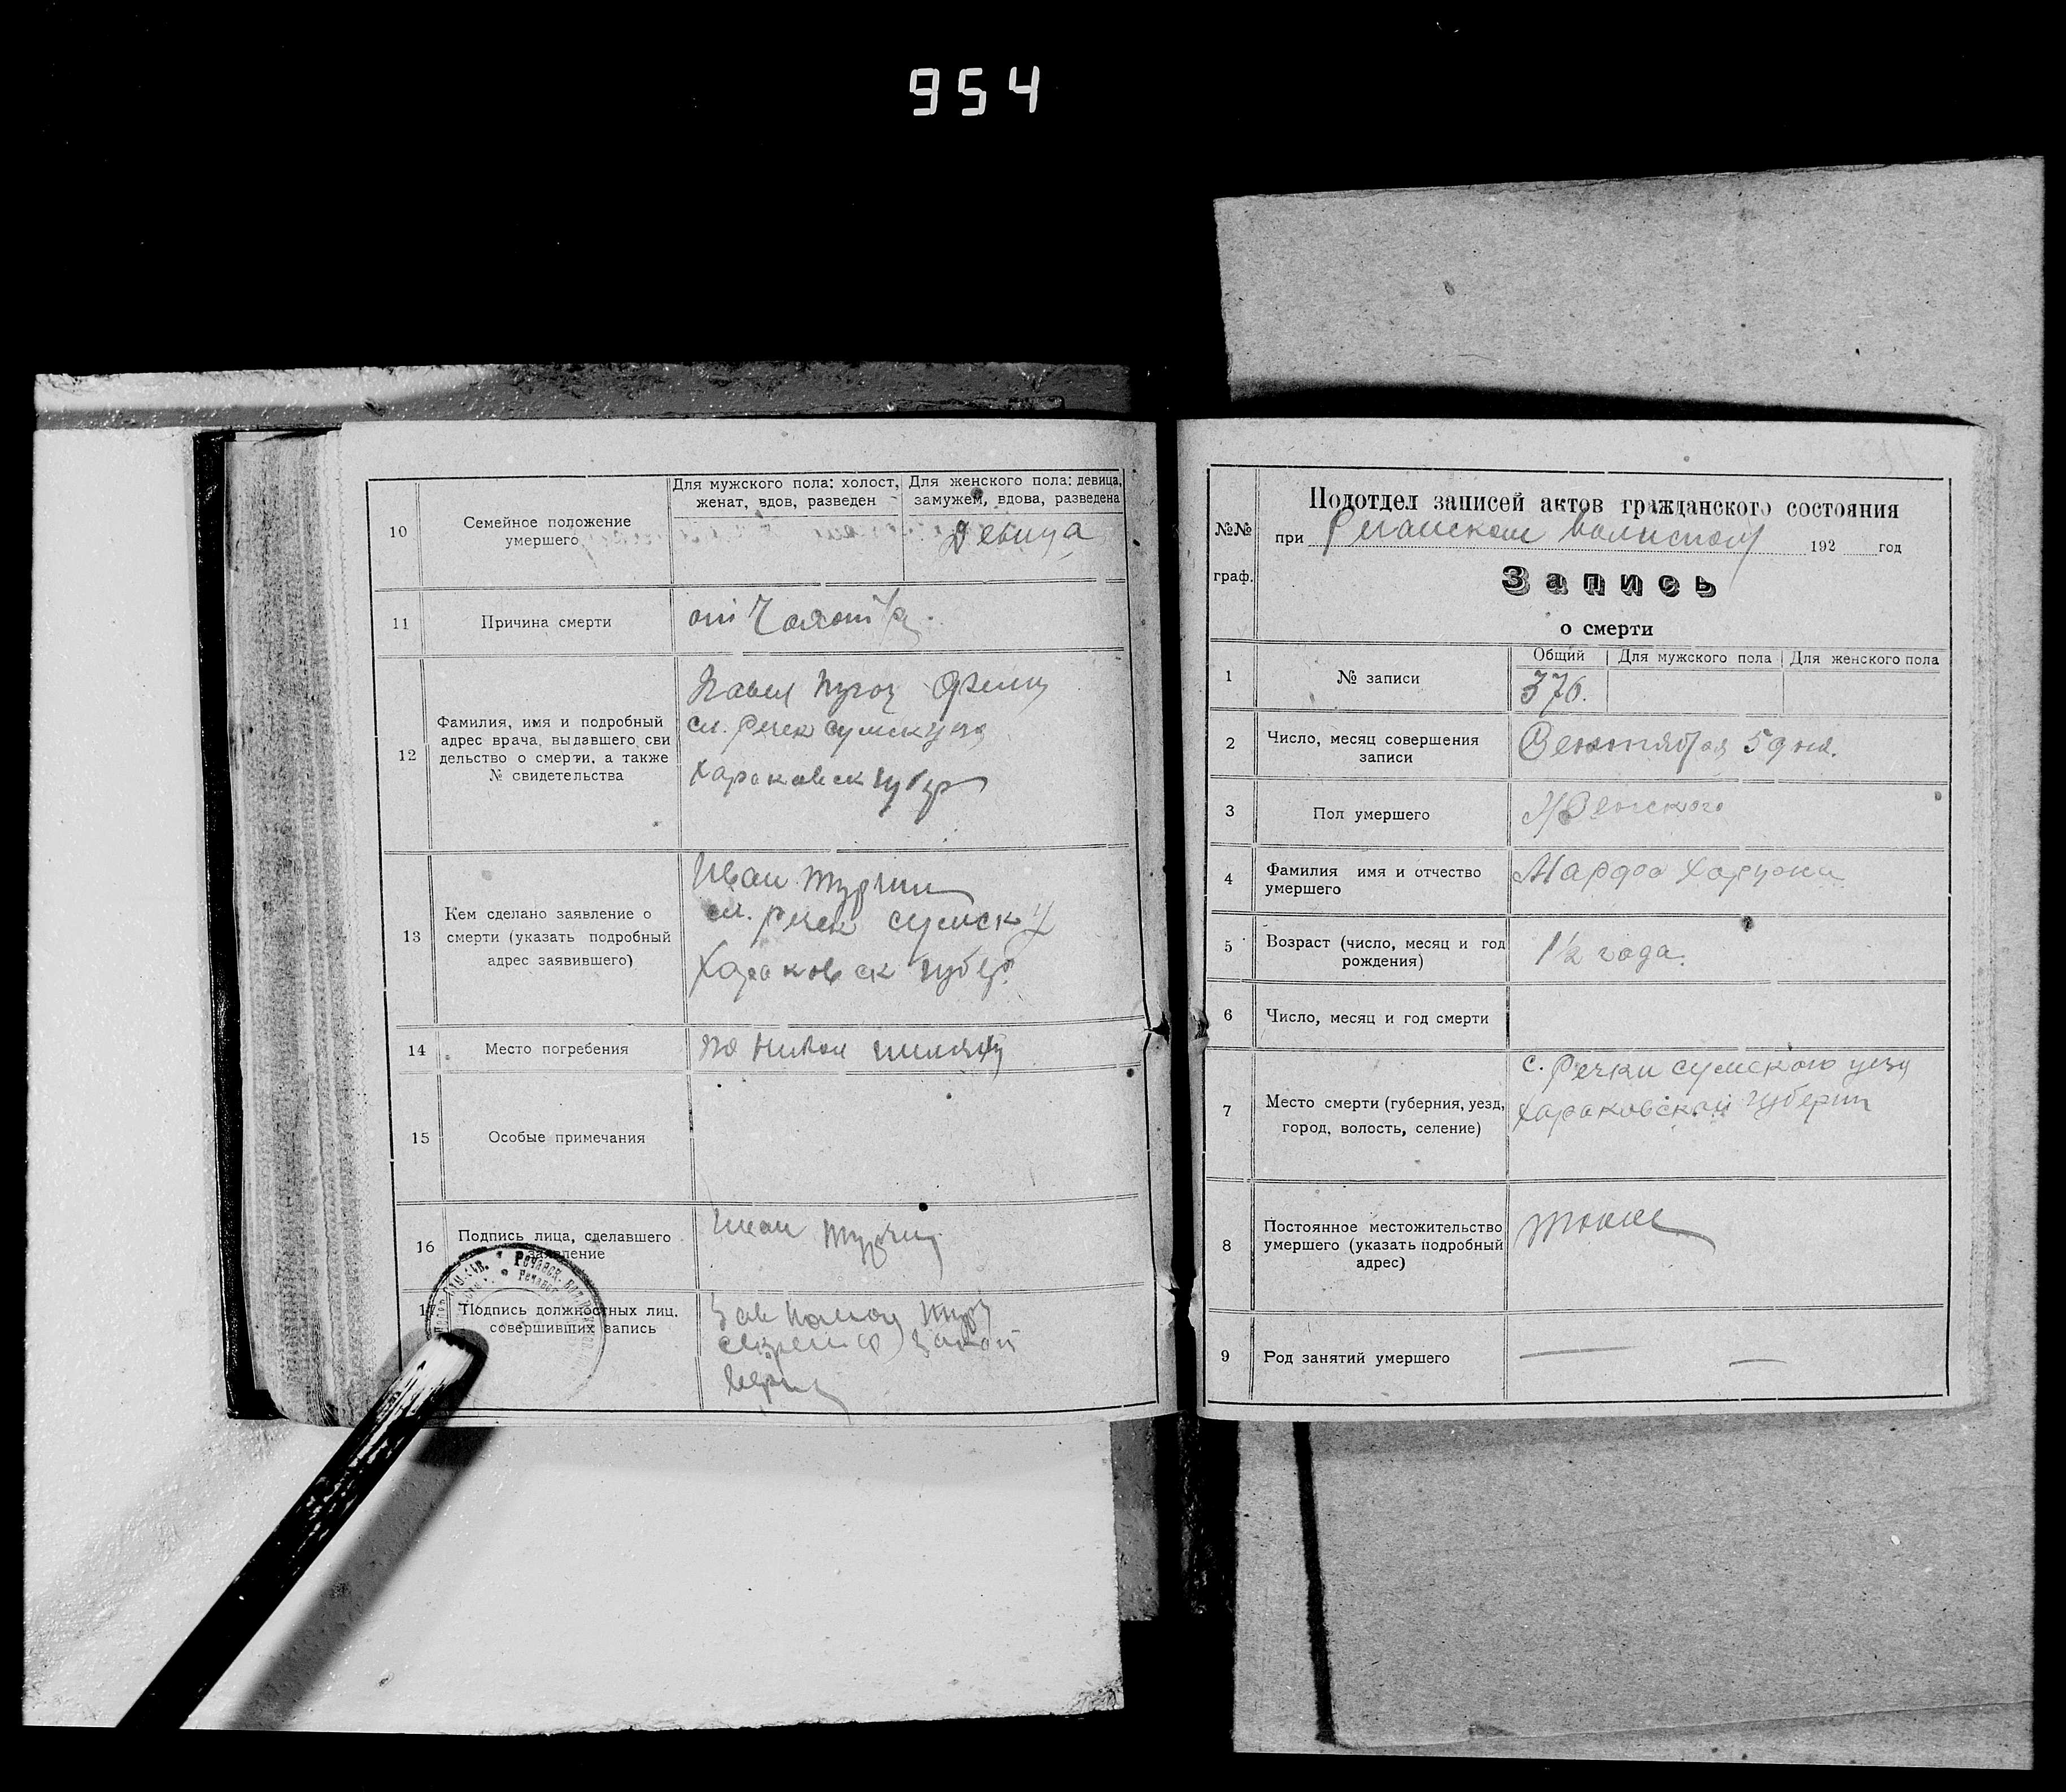 954
10
Семейное положение
умершего
Для мужского пола: холост,
женат, вдов, разведен
Для женского пола: девица,
замужем, вдова, разведена
Девица
11
Причина смерти
от
12
Фамилия, имя и подробный
адрес врача, выдавшего сви
дельство о смерти, а также
№ свидетельства
Павел
сл. Речек сумск
Хараковск губер
13
Кем сделано заявление о
смерти (указать подробный
адрес заявившего)
Иван
сл. речек сумск у
Хараковск губер.
14
Место погребения
15
Особые примечания
16
Подпись лица, сделавшего
заявление
Иван
17
Подпись должностных лиц.
совершивших запись
№№
граф.
Подотдел записей актов гражданского состояния
при Речанском 192 год
Запись
о смерти
1
№ записи
Общий
Для мужского пола
Для женского пола
376.
2
Число, месяц совершения
записи
Сентября 5 дня.
3
Пол умершего
Женского
4
Фамилия имя и отчество
умершего
Марфа
5
Возраст (число, месяц и год
рождения)
1½ года.
6
Число, месяц и год смерти
7
Место смерти (губерния, уезд,
город, волость, селение)
с. Речки сумского уезд
Хараковской губерни
8
Постоянное местожительство
умершего (указать подробный
адрес)
тоже
9
Род занятий умершего
— —